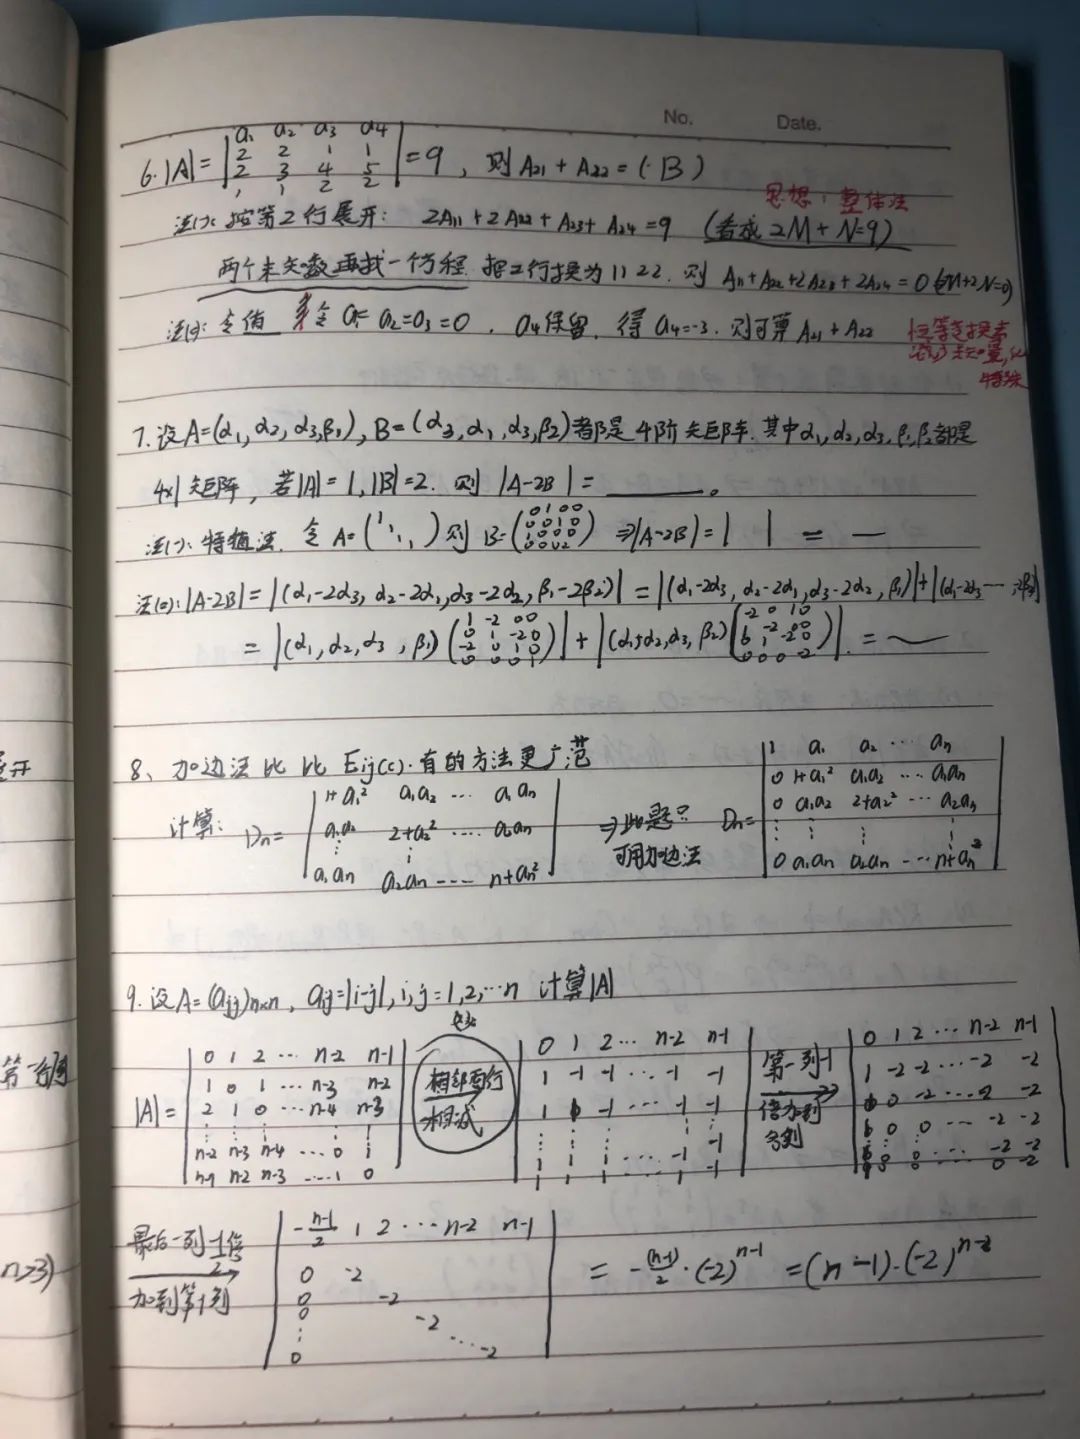 No. Date.
6. |A| = | a₁ a₂ a₃ a₄
2 2 1 1
2 3 4 5
1 1 2 2 | = 9, 则 A₂₁ + A₂₂ = (·B)
思想: 整体法
法(一): 按第2行展开: 2A₁₁ + 2A₂₂ + A₂₃ + A₂₄ = 9 (看成 2M + N = 9)
两个未知数再找一个方程. 把2行换为 1 1 2 2. 则 A₁₁ + A₂₂ + 2A₂₃ + 2A₂₄ = 0 (M+2N=0)
法(二): 令值 令 a₁= a₂=a₃=0, a₄保留. 得 a₄=-3. 则可算 A₂₁ + A₂₂
恒等变换素
特殊
7. 设 A=(α₁, α₂, α₃, β₁), B=(α₃, α₁, α₃, β₂)都是4阶矩阵. 其中α₁, α₂, α₃, β₁, β₂都是
4×1矩阵, 若|A|=1, |B|=2. 则 |A-2B| = ____。
法(一): 特殖法. 令 A=(1 1 1 1) 则 B=(0100 0010 1000 0002) ⇒ |A-2B| = | | = —
法(二): |A-2B| = |(α₁-2α₃, α₂-2α₁, α₃-2α₂, β₁-2β₂)| = |(α₁-2α₃, α₂-2α₁, α₃-2α₂, β₁)| + |(α₁-2α₃ ⋯, -2β₂)|
= |(α₁, α₂, α₃, β₁) (1 -2 0 0 0 1 -2 0 -2 0 1 0 0 0 0 1)| + |(α₁, α₂, α₃, β₂) (-2 0 1 0 6 -2 0 0 0 1 -2 0 0 0 0 -2)| = —
8、加边法 比 比 Eij(c). 有的方法更广范
计算: Dn = | 1+a₁² a₁a₂ ⋯ a₁an
a₁a₂ 2+a₂² ⋯ a₂an
⋮ ⋮
a₁an a₂an ⋯ n+an² | ⇒ 此题: 可用加边法 Dn = | 1 a₁ a₂ ⋯ an
0 1+a₁² a₁a₂ ⋯ a₁an
0 a₁a₂ 2+a₂² ⋯ a₂an
⋮ ⋮ ⋮ ⋮
0 a₁an a₂an ⋯ n+an² |
9. 设 A=(aij)n×n, aij=|i-j|, i, j=1, 2, ⋯n 计算|A|
|A| = | 0 1 2 ⋯ n-2 n-1
1 0 1 ⋯ n-3 n-2
2 1 0 ⋯ n-4 n-3
⋮ ⋮ ⋮ ⋮ ⋮
n-2 n-3 n-4 ⋯ 0 1
n-1 n-2 n-3 ⋯ 1 0 |
相邻两行
相减
| 0 1 2 ⋯ n-2 n-1
1 -1 -1 ⋯ -1 -1
1 1 -1 ⋯ -1 -1
⋮ ⋮ ⋮ -1
1 1 1 ⋯ -1 -1
1 1 1 ⋯ 1 -1 |
第一列-1
倍加到
各列
| 0 1 2 ⋯ n-2 n-1
1 -2 -2 ⋯ -2 -2
0 0 -2 ⋯ -2 -2
0 0 0 ⋯ -2 -2
⋮ ⋮ ⋮ ⋯ -2 -2
0 0 0 0 -2 |
最后一列 -1/2倍
加到第1列
| -(n-1)/2 1 2 ⋯ n-2 n-1
0 -2
0 -2
0 -2
⋮ ⋯
0 -2 |
= -(n-1)/2 · (-2)ⁿ⁻¹ = (n-1)·(-2)ⁿ⁻²
展开
第一行(列)
n≥3)